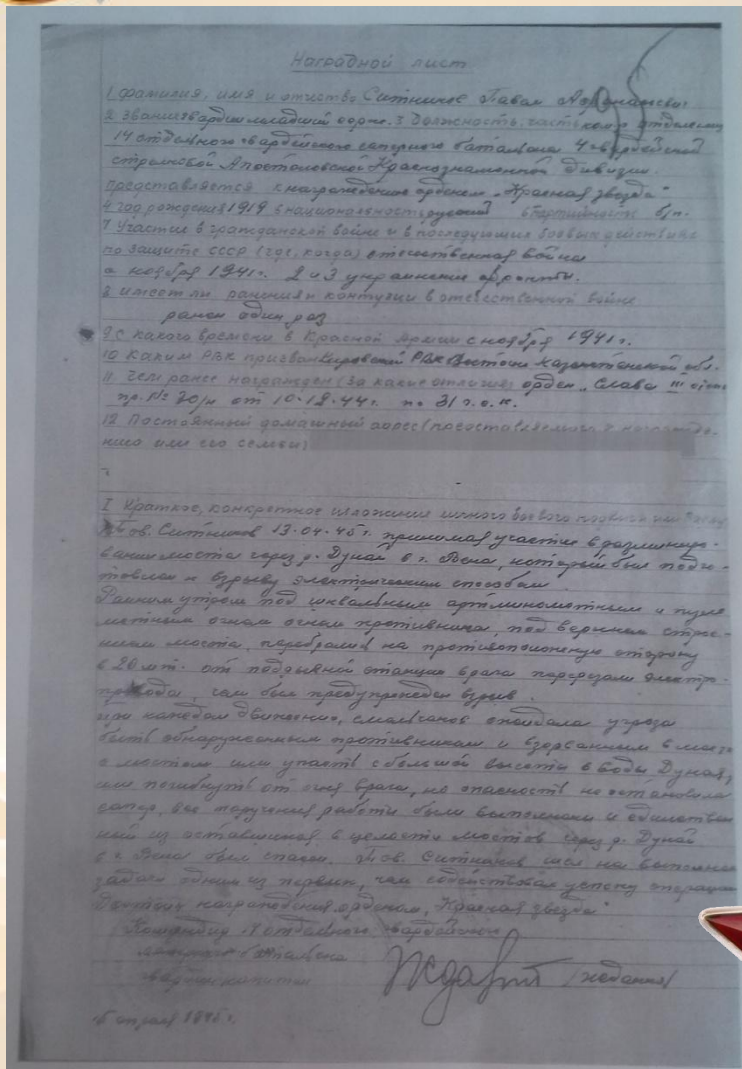 Наградной лист
1 Фамилия, имя и отчество Ситников Павел
2 Звание гвардии младший 3 Должность, часть
14 отдельного гвардейского саперного батальона 4 гвардейской
стрелковой Апостоловской Краснознаменной дивизии.
представляется к награждению орденом „Красная звезда"
4 год рождения 1919 5 национальность русский 6 партийность б/п.
7 Участие в гражданской войне и в последующих боевых действиях
по защите СССР (где, когда) отечественная война
с ноября 1941г. 2 и 3 украинские фронты.
8 имеет ли ранения и контузии в отечественной войне
ранен один раз
9 с какого времени в Красной Армии с ноября 1941г.
10 Каким РВК призван Кировский РВК Восточно Казахстанской обл.
11 Чем ранее награжден (за какие отличия) орден „Слава III
пр. № от 10.12.44г. по 31 г.с.к.
12 Постоянный домашний адрес (
нию или его семьи)
I Краткое, конкретное изложение личного боевого подвига или
Тов. Ситников 13.04.45г. принимая участие в разминиро-
вании моста через р. Дунай в г. Вена, который был подго-
товлен к взрыву электрическим способом.
Ранним утром под шквальным артминометным и пуле
метным огнем противника, под верхним строе-
нием моста, перебрались на противоположную сторону
в 20 мт. от подрывной станции врага перерезали электро-
провода, чем был предупрежден взрыв.
При каждом движении, смельчаков ожидала угроза
быть обнаруженным противником и взорванным в месте
с мостом или упасть с большой высоты в воды Дуная,
или погибнуть от огня врага, но опасность не остановила
сапер, все работы были выполнены и единствен
ный из оставшихся в целости мостов через р. Дунай
в г. Вена был спасен. Тов. Ситников шел на выполнение
задачи одним из первых, чем содействовал успеху операции
Достоин награждения орденом „Красная звезда"
Командир 14 отдельного гвардейского
саперного батальона
гвардии капитан
апреля 1945г.